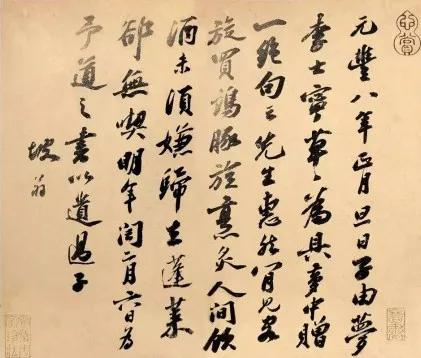 元豐八年正月旦日子由夢
李士寧草草為具夢中贈
一絕句云先生惠然肯見客
旋買鷄豚旋烹炙人間飲
酒未須嫌歸去蓬萊
卻無喫明年閏二月六日為
予道之書以遺過子
坡翁